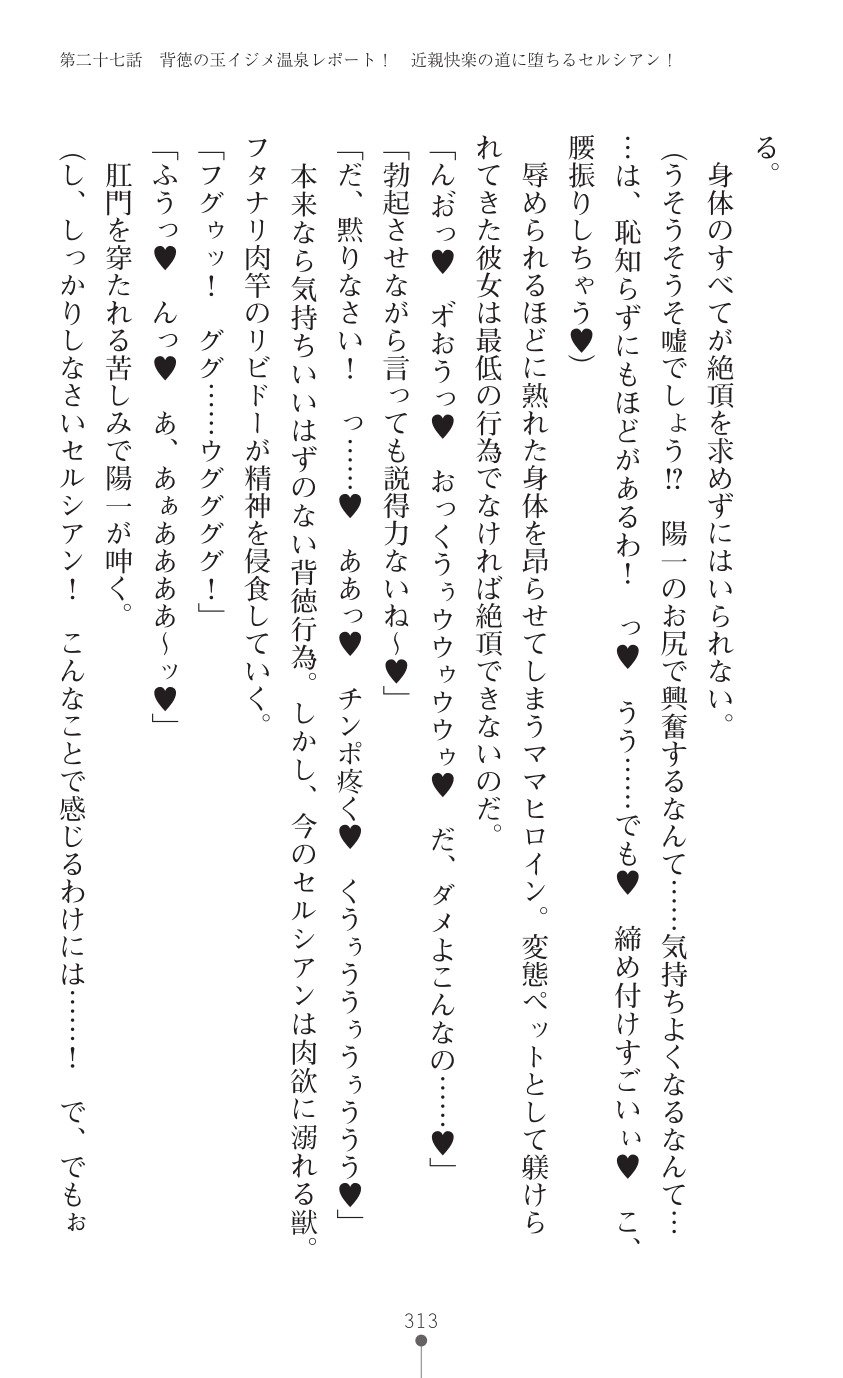 第二十七話　背徳の玉イジメ温泉レポート！　近親快楽の道に堕ちるセルシアン！
る。
　身体のすべてが絶頂を求めずにはいられない。
（うそうそうそ嘘でしょう!?　陽一のお尻で興奮するなんて……気持ちよくなるなんて…
…は、恥知らずにもほどがあるわ！　っ♥　うう……でも♥　締め付けすごいぃ♥　こ、
腰振りしちゃう♥）
　辱められるほどに熟れた身体を昂らせてしまうママヒロイン。変態ペットとして躾けら
れてきた彼女は最低の行為でなければ絶頂できないのだ。
「んお゛っ♥　オ゛おうっ♥　おっくうぅウウゥウウゥ♥　だ、ダメよこんなの……♥」
「勃起させながら言っても説得力ないね～♥」
「だ、黙りなさい！　っ……♥　ああっ♥　チンポ疼く♥　くうぅううぅうぅううう♥」
　本来なら気持ちいいはずのない背徳行為。しかし、今のセルシアンは肉欲に溺れる獣。
フタナリ肉竿のリビドーが精神を侵食していく。
「フグゥッ！　ググ……ウググググ！」
「ふうっ♥　んっ♥　あ、あぁああああ～ッ♥」
　肛門を穿たれる苦しみで陽一が呻く。
（し、しっかりしなさいセルシアン！　こんなことで感じるわけには……！　で、でもぉ
313